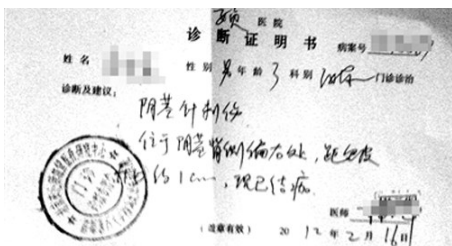 医院
诊断证明书 病案号
姓名 性别 男 年龄 3 科别 泌尿 门诊诊治
诊断及建议:
阴茎针刺伤
位于阴茎背侧偏右处,距包皮
约1cm,现已结痂
医师
(改章有效) 2012年2月16日